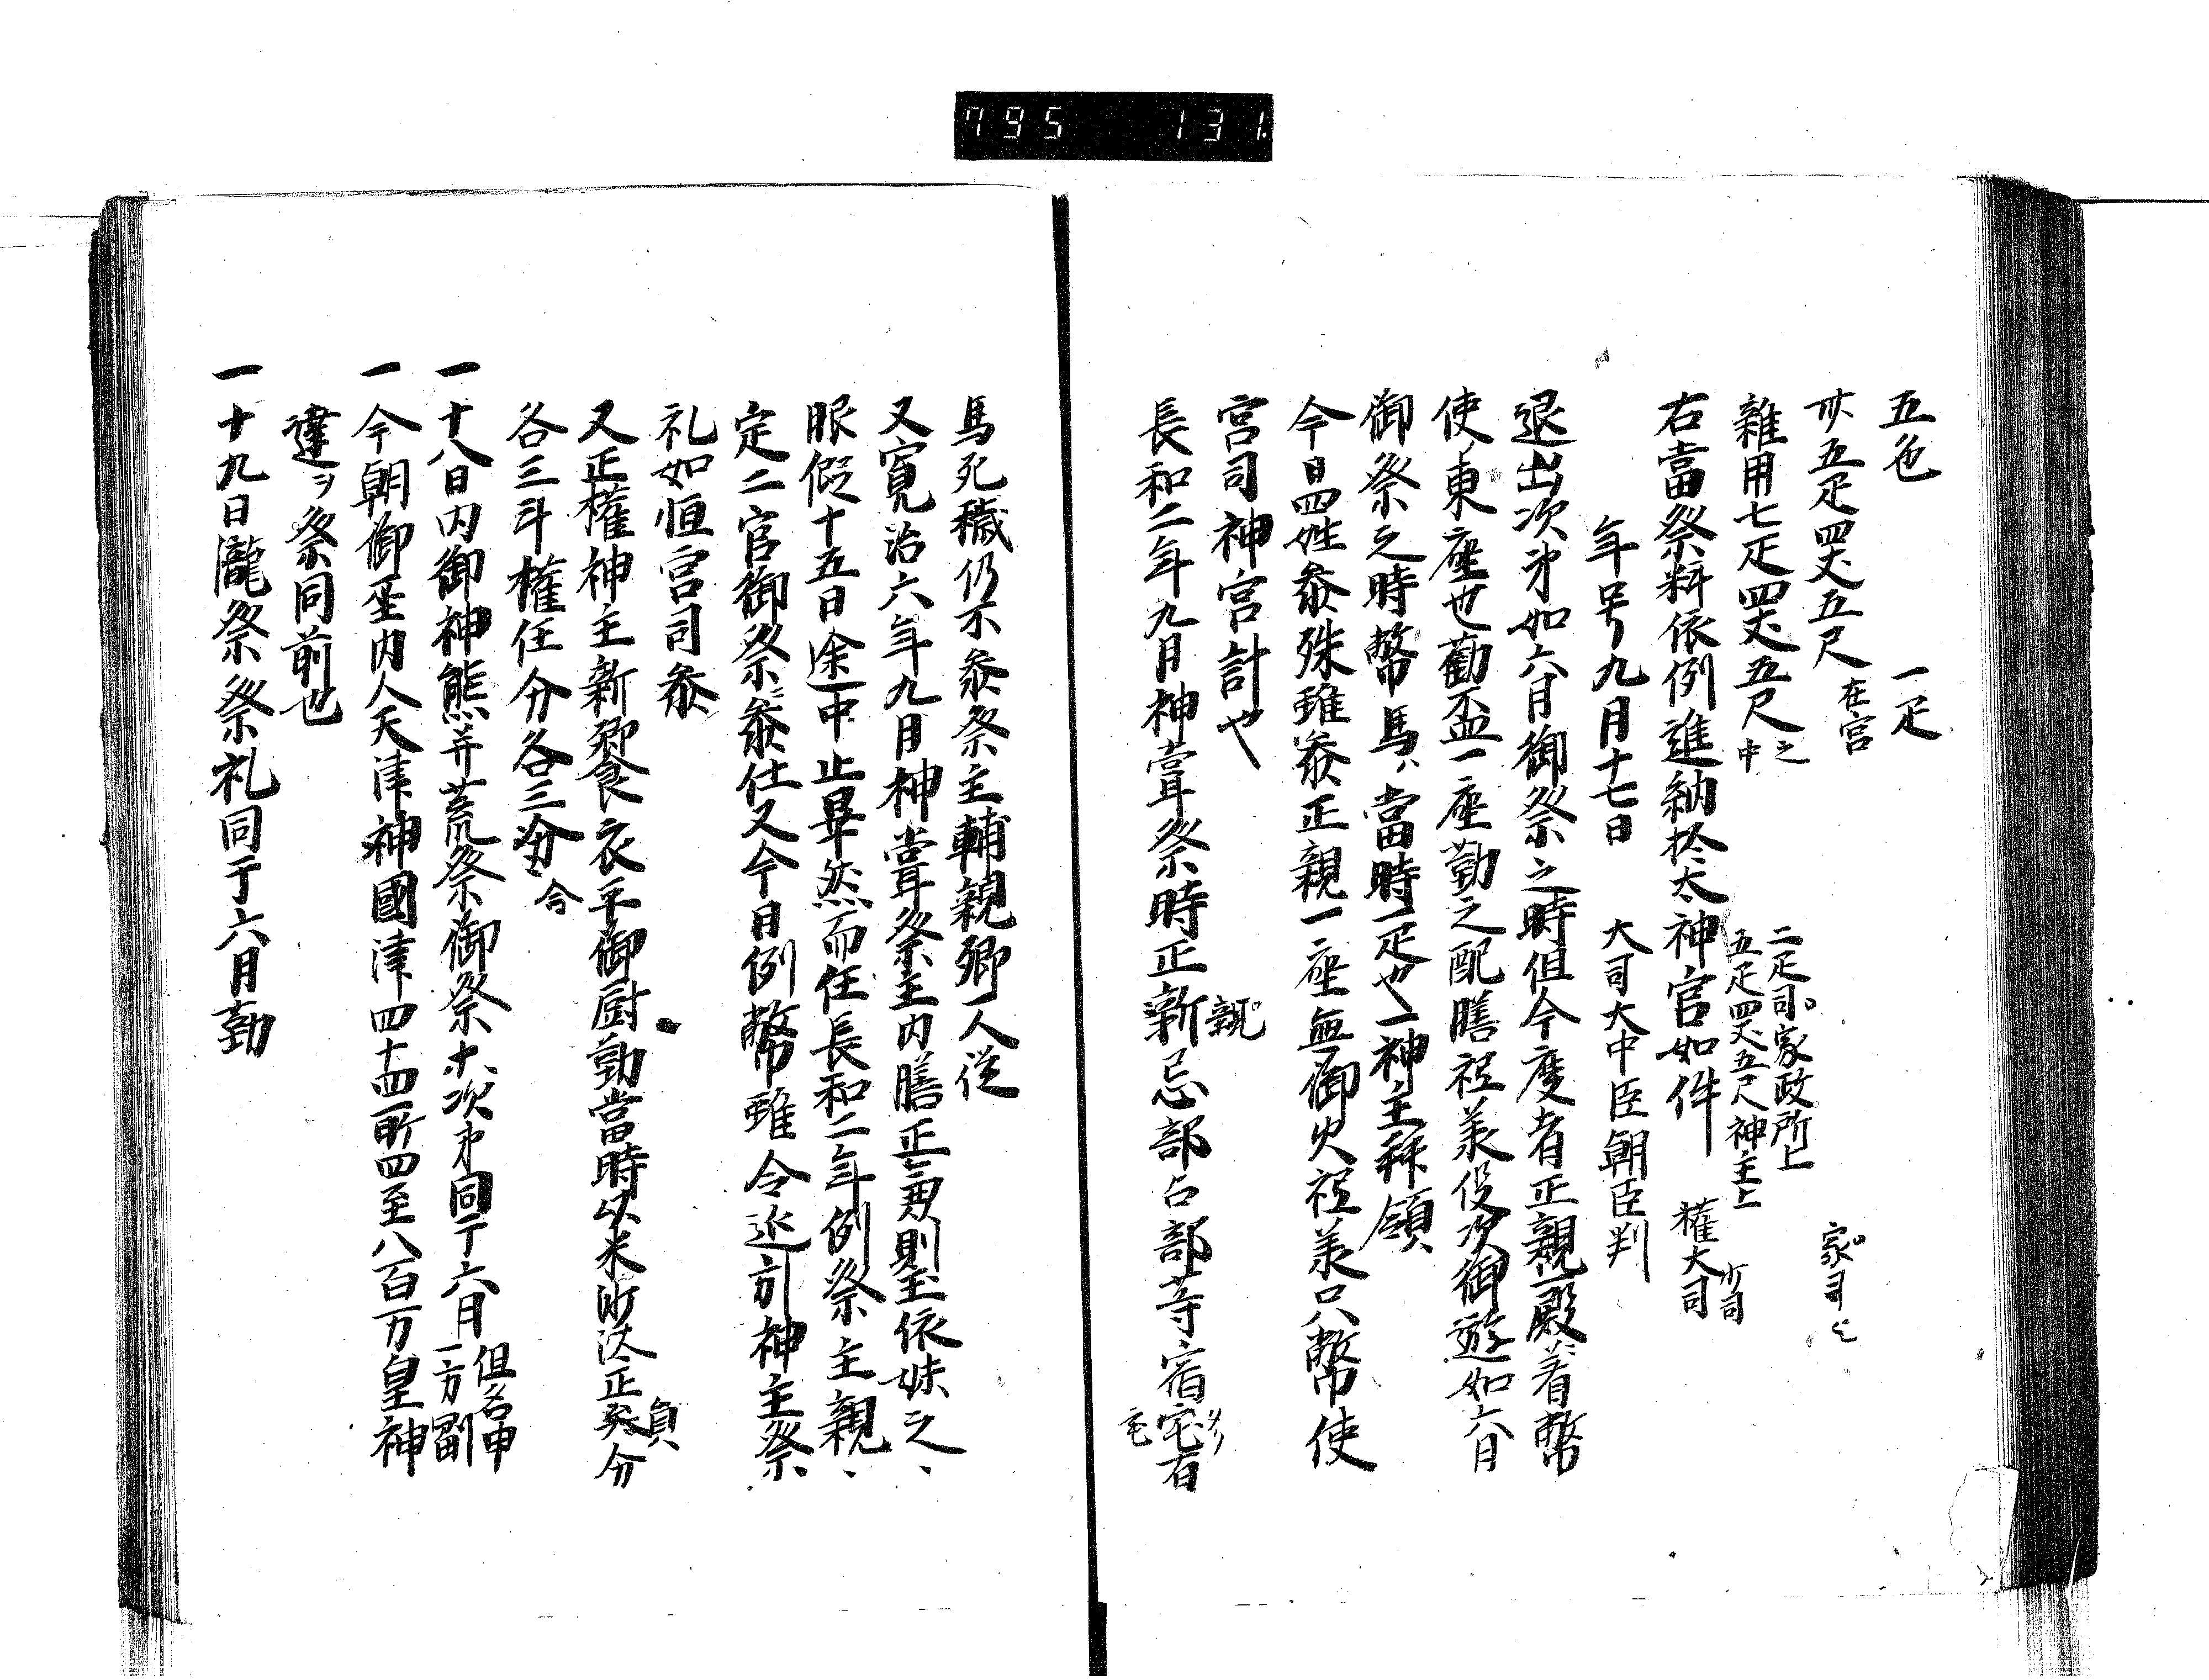 795 131
五色　一疋
廾五疋四丈五尺 在宮
家司上
雜用七疋四丈五尺 之中
二疋司家政所上
五疋四丈五尺神主上
右當祭料依例進納於太神宮如件
權大司
少司
年号九月十七日　大司大中臣朝臣判
退出次第如六月御祭之時但今度者正親殿着幣
使東座也勸盃一座勤之配膳祗羨役次御遊如六月
御祭之時幣馬、當時一疋也一神主拜領
今日四姓叅殊雖叅正親一座無御火祗羨只幣使
宮司神宮計也
長和二年九月神嘗祭時正新忌部占部等宿宅有
親
馬死穢仍不叅祭主輔親卿一人從
又寛治六年九月神嘗祭主内膳正則主依妹之、
服假十五日途中止畢然而任長和二年例祭主親、
定二官御祭叅仕又今日例幣雖令延引神主祭、
礼如恒宮司叅
又正權神主新饗食衣平御厨勤當時以米沙汰正員分
各三斗權任分各三
一十八日内御神態并荒祭御祭次第同于六月 但名申一方副
一今朝御巫内人天津神國津四十四所四至八百万皇神
違ヲ祭同前也
一十九日瀧祭祭礼同于六月勤